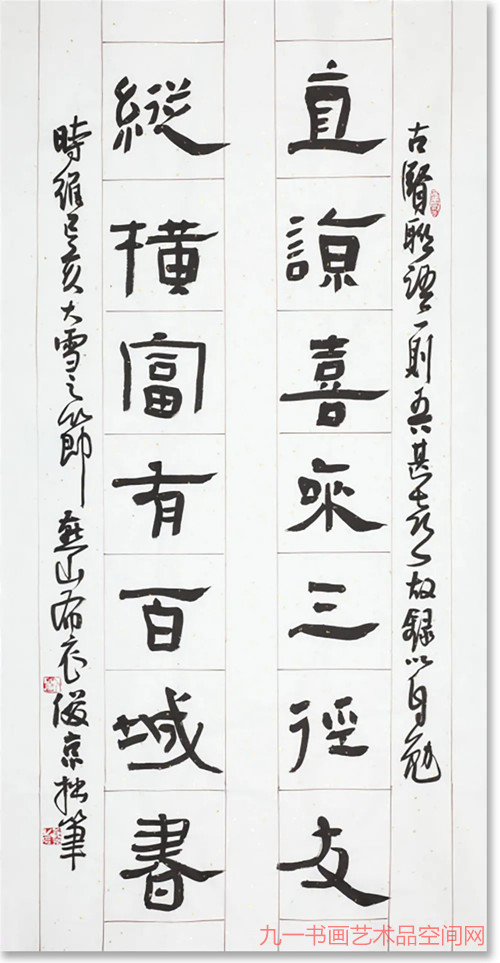 古賢聯譚一則吾甚喜之故錄以自勉
直諒喜來三徑友
縱橫富有百城書
時維己亥大雪之節燕山布衣俊京拙筆
九一书画艺术品空间网